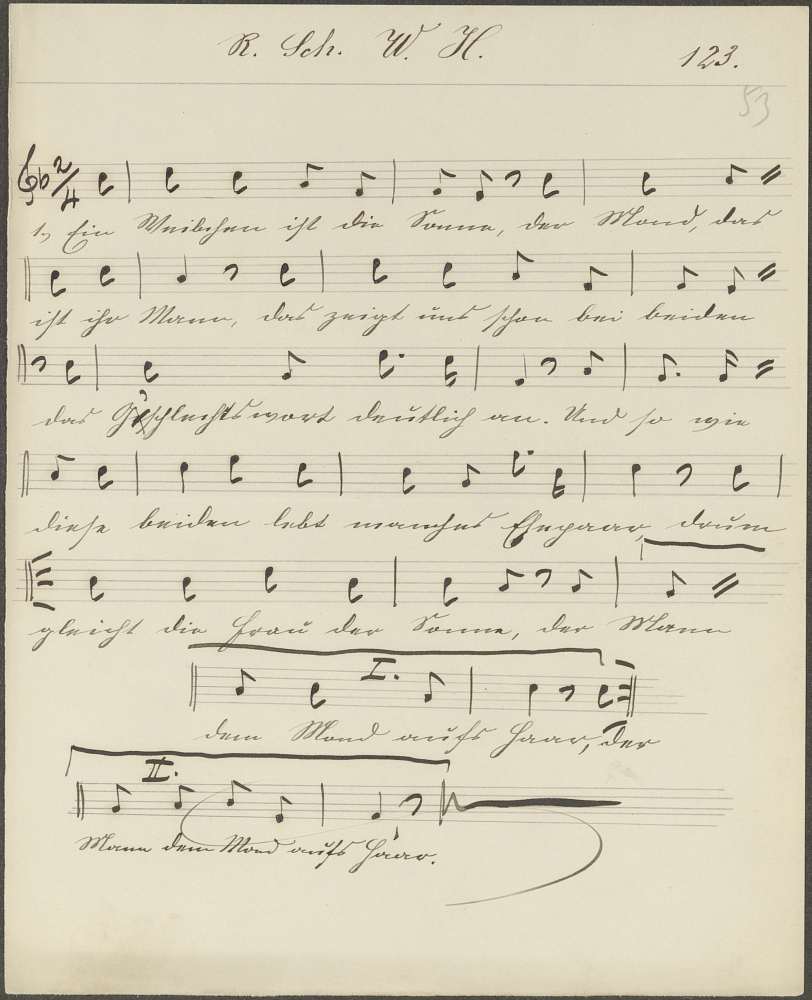 R. Sch. W. H. 123.
53
2/4
1., Ein Weibchen ist die Sonne, der Mond, das
ist ihr Mann, das zeigt uns schon bei beiden
das Geschlechtswort deutlich an. Und so wie
diese beiden lebt manches Ehepaar, drum
gleicht die Frau der Sonne, der Mann
I.
dem Mond aufs Haar, der
II.
Mann dem Mond aufs Haar.